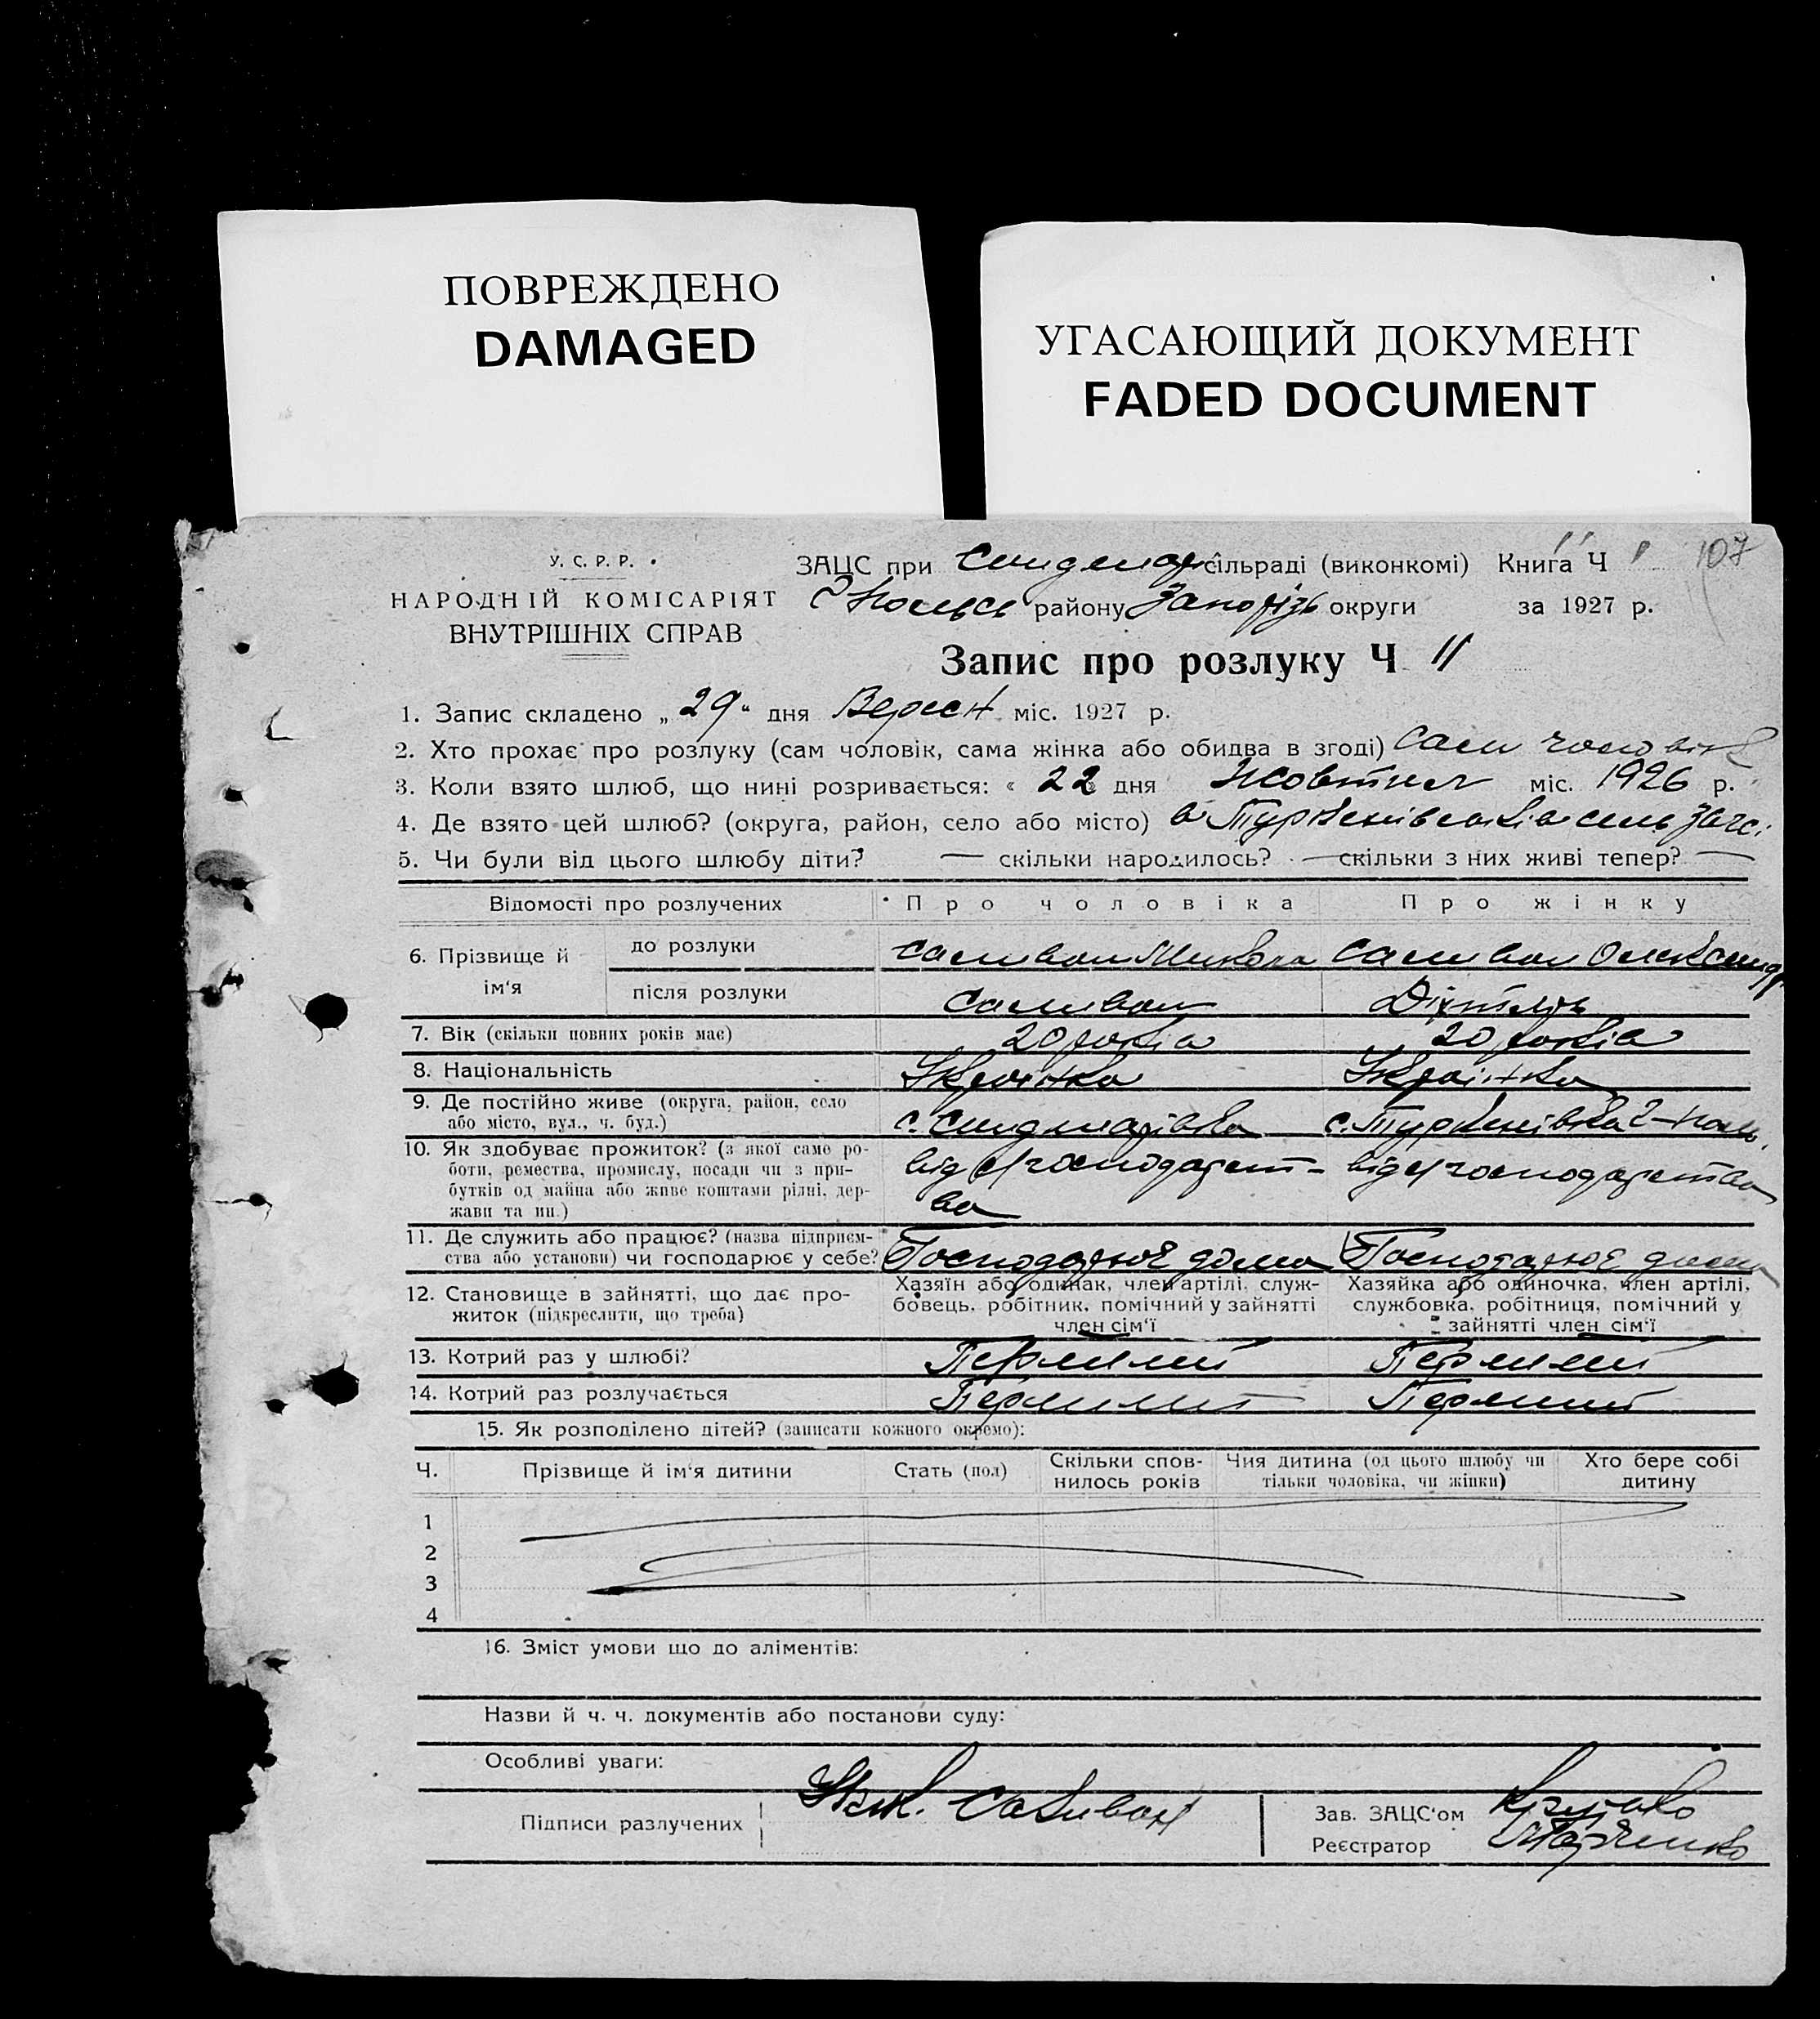 ПОВРЕЖДЕНО
DAMAGED
УГАСАЮЩИЙ ДОКУМЕНТ
FADED DOCUMENT
107
У. С. Р. Р.
НАРОДНІЙ КОМІСАРІЯТ
ВНУТРІШНІХ СПРАВ
ЗАЦС при сільраді (виконкомі) Книга Ч
району Запорізь округи за 1927 р.
Запис про розлуку Ч 11
1. Запис складено „ 29 “ дня Вересн міс. 1927 р.
2. Хто прохає про розлуку (сам чоловік, сама жінка або обидва в згоді) Сам чоловік
3. Коли взято шлюб, що нині розривається: « 22 » дня Жовтня міс. 1926 р.
4. Де взято цей шлюб? (округа, район, село або місто) в
5. Чи були від цього шлюбу діти? — скільки народилось? — скільки з них живі тепер? —
Відомості про розлучених Про чоловіка Про жінку
6. Прізвище й ім'я
до розлуки Саливон Микола Саливон
після розлуки Саливон
7. Вік (скільки повних років має) 20 років 20 років
8. Національність Українка Українка
9. Де постійно живе (округа, район, село
або місто, вул., ч. буд.) с. с.
10. Як здобуває прожиток? (з якої саме ро-
боти, ремества, промислу, посади чи з при-
бутків од майна або живе коштами рідні, дер-
жави та ин.)
від с/господарст-
ва
від с/господарства
11. Де служить або працює? (назва підприєм-
ства або установи) чи господарює у себе?
Господарює дома Господарює дома
12. Становище в зайнятті, що дає про-
житок (підкреслити, що треба)
Хазяїн або одинак, член артілі, служ-
бовець, робітник, помічний у зайнятті
член сім'ї
Хазяйка або одиночка, член артілі,
службовка, робітниця, помічний у
зайнятті член сім'ї
13. Котрий раз у шлюбі? Перший Перший
14. Котрий раз розлучається Перший Перший
15. Як розподілено дітей? (записати кожного окремо):
Ч. Прізвище й ім'я дитини Стать (пол) Скільки спов-
нилось років Чия дитина (од цього шлюбу чи
тільки чоловіка, чи жінки) Хто бере собі
дитину
1
2
3
4
16. Зміст умови що до аліментів:
Назви й ч. ч. документів або постанови суду:
Особливі уваги:
Підписи розлучених Саливон
Зав. ЗАЦС'ом
Реєстратор